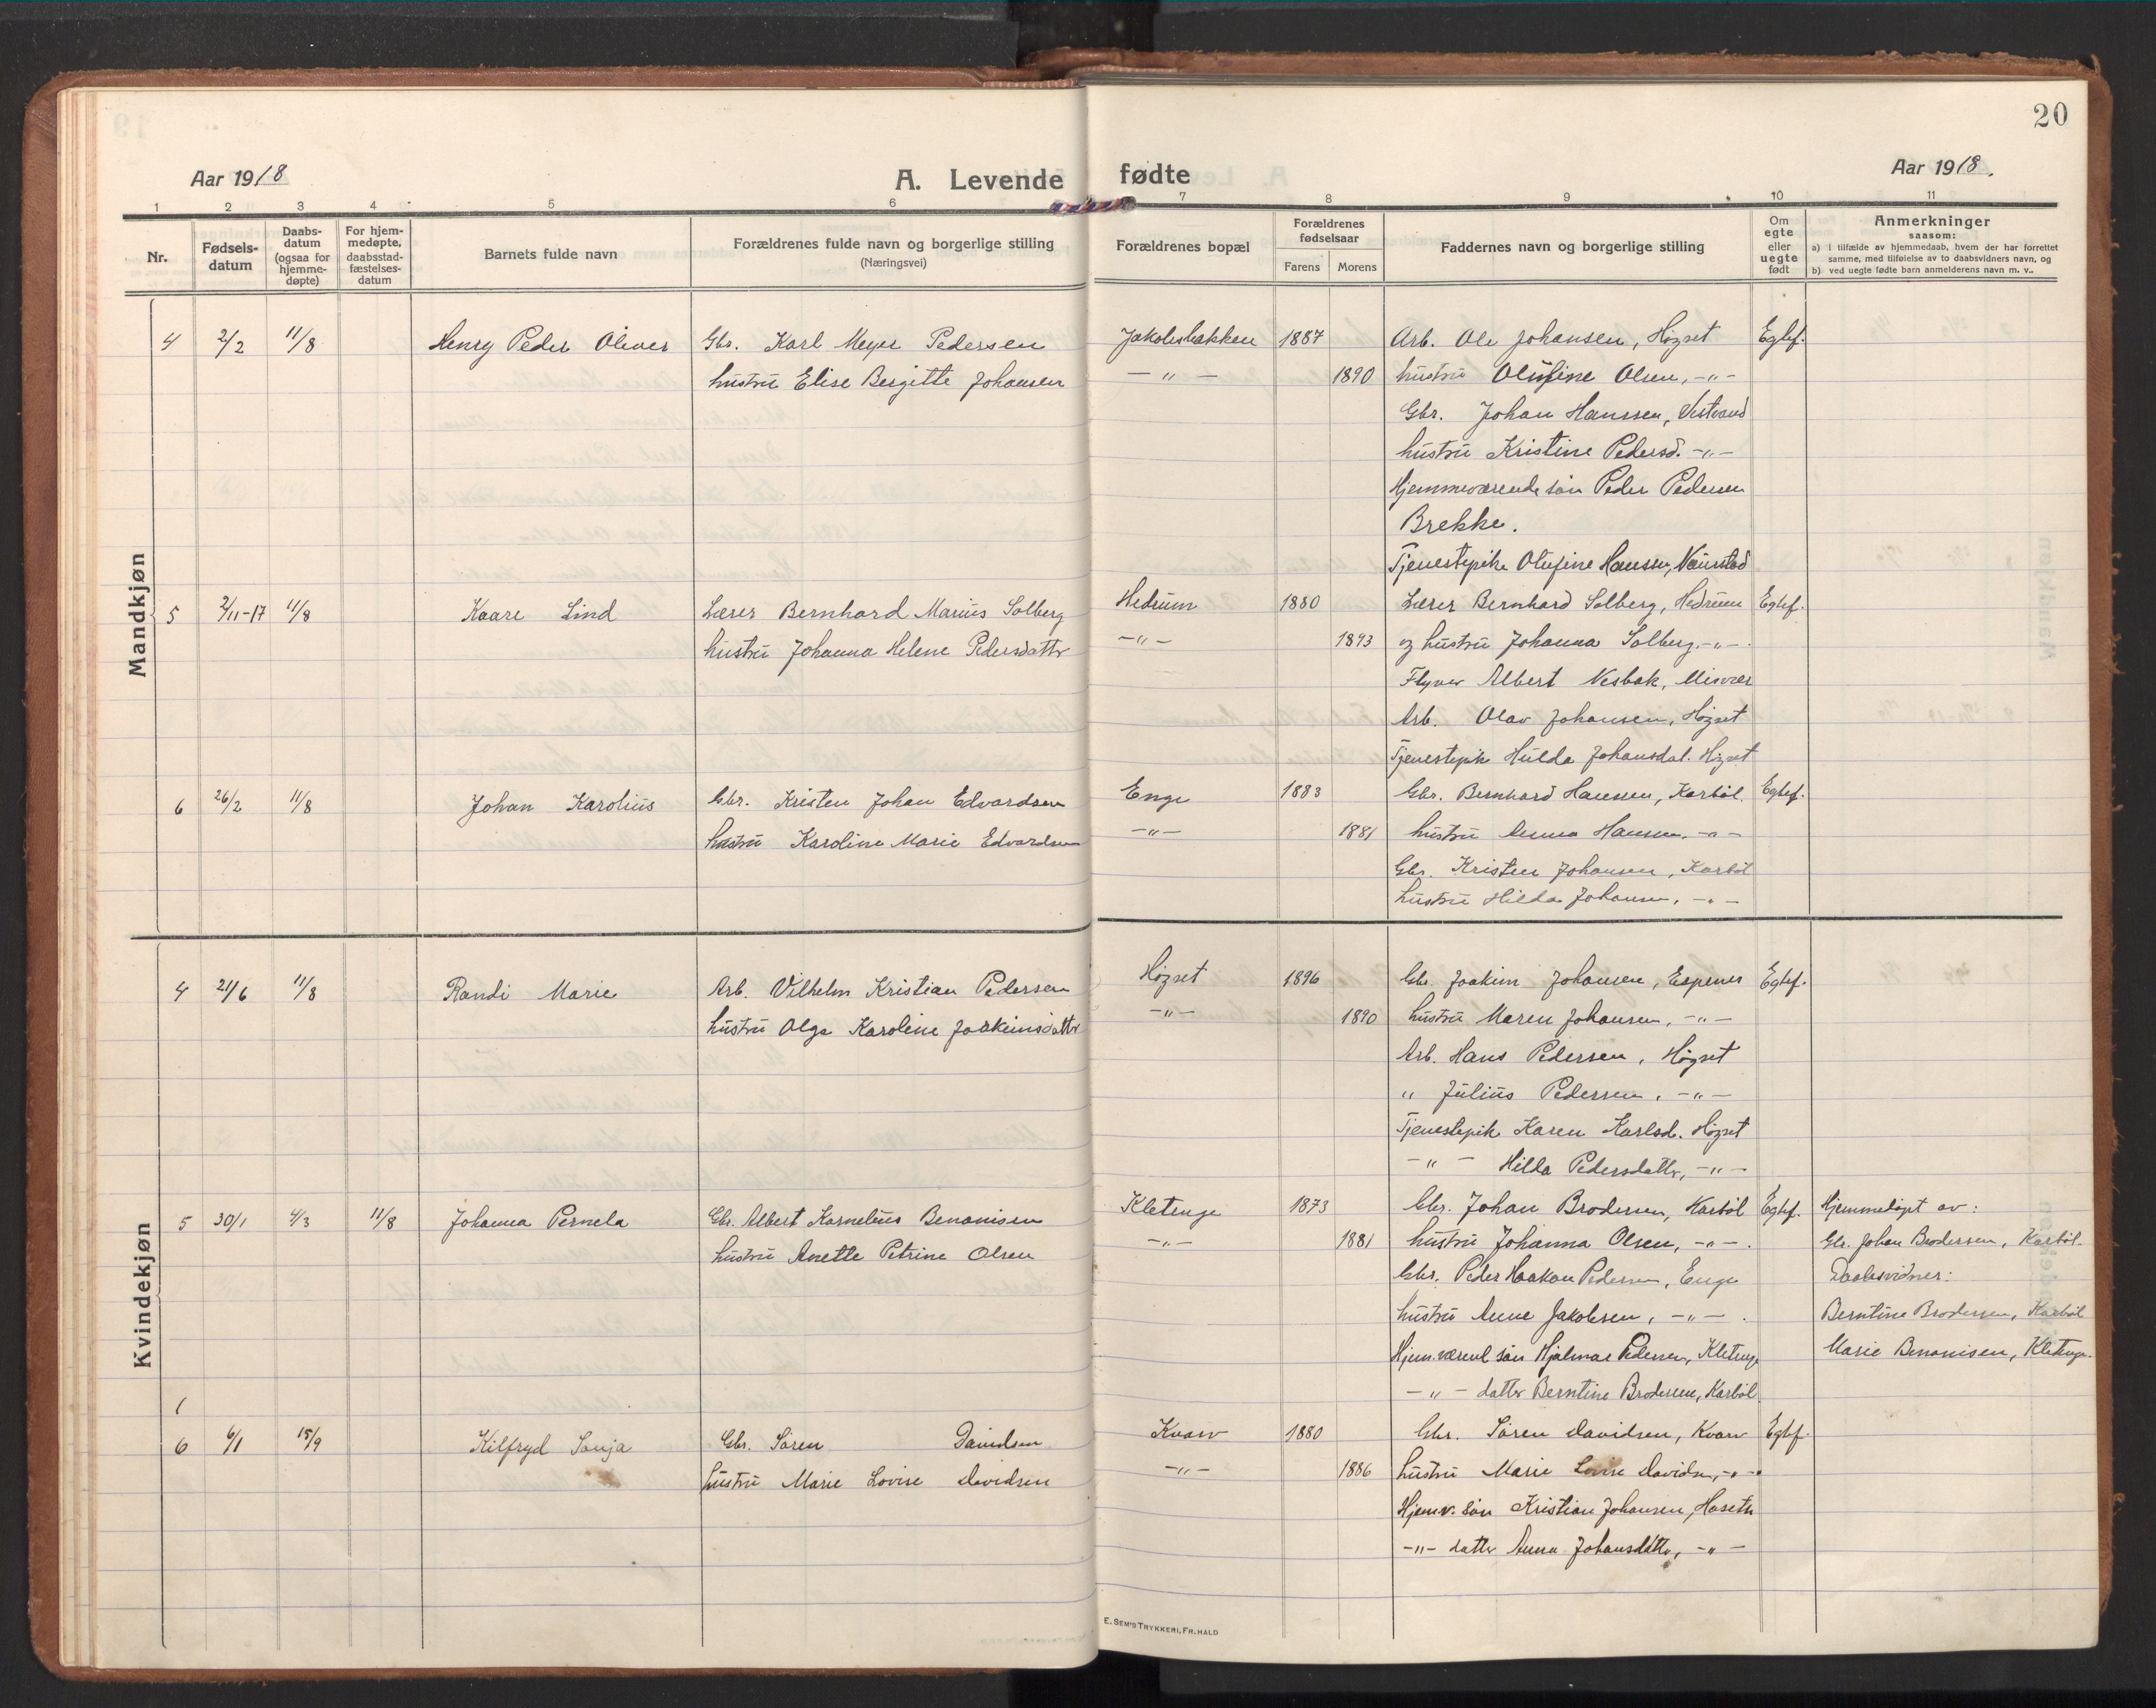 20
Aar 1918
A. Levende fødte
Aar 1918.
1 2 3 4 5 6 7 8 9 10 11
Nr.
Fødsels-datum
Daabs-datum (ogsaa for hjemme-døpte)
For hjem-medøpte, daabsstad-fæstelses-datum
Barnets fulde navn
Forældrenes fulde navn og borgerlige stilling
(Næringsvei)
Forældrenes bopæl
Forældrenes fødselsaar
Farens Morens
Faddernes navn og borgerlige stilling
Om egte eller uegte født
Anmerkninger
saasom:
a) i tilfælde av hjemmedaab, hvem der har forrettet samme, med tilføielse av to daabsvidners navn, og
b) ved uegte fødte barn anmelderens navn m. v..
Mandkjøn
4 2/2 11/8 Henry Peder Oliver Gbr. Karl Meyer Pedersen Jakobsbakken 1887 Arb. Ole Johansen, Høgset Egtef.
hustru Elise Bergitte Johansen -"- 1890 hustru Olufine Olsen, -"-
Gbr. Johan Hanssen, Vestvand
hustru Kristine Pedersd. -"-
Hjemmeværende søn Peder Pedersen
Brekke.
Tjenestepike Olufine Hansen,
5 2/11-17 11/8 Kaare Lind Lærer Bernhard Marius Solberg Hedrum 1880 Lærer Bernhard Solberg, Hedrum Egtef.
hustru Johanna Helene Pedersdattr -"- 1893 og hustru Johanna Solberg. -"-
Flyver Albert Nesbak, Misvær
Arb. Olav Johansen, Høgset
Tjenestepik Hulda Johansdat. Høgset
6 26/2 11/8 Johan Karolius Gbr. Kristen Johan Edvardsen Enge 1883 Gbr. Bernhard Hansen, Karbøl. Egtef.
hustru Karoline Marie Edvardsen -"- 1881 hustru Anna Hansen. -"-
Gbr. Kristen Johansen, Karbøl
hustru Hilda Johansen, -"-
Kvindekjøn
4 21/6 11/8 Randi Marie Arb. Vilhelm Kristian Pedersen Høgset 1896 Gbr. Joakim Johansen, Espenes Egtef.
hustru Olga Karoline Joakimsdattr -"- 1890 hustru Maren Johansen, -"-
Arb. Hans Pedersen, Høgset
" Julius Pedersen, -"-
Tjenestepik Karen Karlsd. Høgset
-"- Hilda Pedersdattr, -"-
5 30/1 4/3 11/8 Johanna Pernela Gbr. Albert Kornelius Benonisen Kletenge 1873 Gbr. Johan Brodersen, Karbøl Egtef. Hjemmedøpt av:
hustru Anette Petrine Olsen -"- 1881 hustru Johanna Olsen, -"-. Gbr. Johan Brodersen, Karbøl.
Gbr. Peder Haakon Pedersen, Enge Daabsvidner:
hustru Anne Jakobsen, -"-. Berntine Brodersen, Karbøl
Hjem.værend søn Hjalmar Pedersen, Kletenge Marie Benonisen, Kletenge.
-"- datter Berntine Brodersen, Karbøl
1
6 6/1 15/9 Kilfryd Sonja Gbr. Søren Davidsen Kvarv 1880 Gbr. Søren Davidsen, Kvarv Egtef.
hustru Marie Lovise Davidsen -"- 1886 hustru Marie Lovise Davidsn, -"-
Hjemv. søn Kristian Johansen,
-"- datter Anna Johansdattr, -"-
E. SEM'S TRYKKERI, FR.HALD